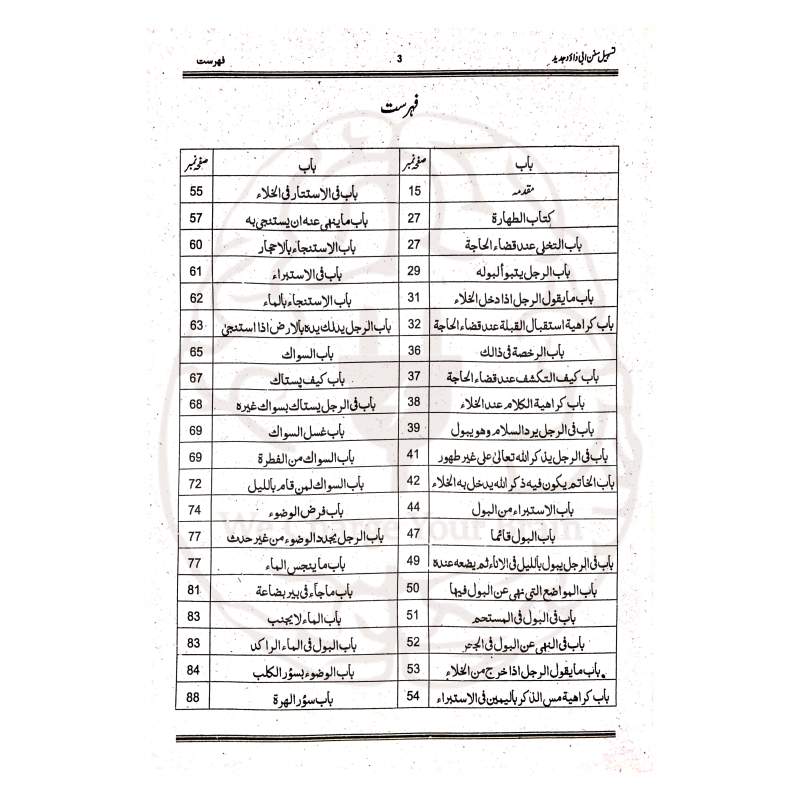 تسہیل سنن ابی داؤد جدید 3 فہرست
فہرست
باب صفحہ نمبر باب صفحہ نمبر
مقدمہ 15 باب فی الاستتار فی الخلاء 55
کتاب الطهارة 27 باب ما ینهی عنه ان یستنجی به 57
باب التخلی عند قضاء الحاجة 27 باب الاستنجاء بالاحجار 60
باب الرجل یتبوأ لبوله 29 باب فی الاستبراء 61
باب ما یقول الرجل اذا دخل الخلاء 31 باب الاستنجاء بالماء 62
باب کراهیة استقبال القبلة عند قضاء الحاجة 32 باب الرجل یدلك یده بالارض اذا استنجیٰ 63
باب الرخصة فی ذالك 36 باب السواك 65
باب کیف التکشف عند قضاء الحاجة 37 باب کیف یستاك 67
باب کراهیة الکلام عند الخلاء 38 باب فی الرجل یستاك بسواك غیره 68
باب فی الرجل یرد السلام وهو یبول 39 باب غسل السواك 69
باب فی الرجل یذکر الله تعالیٰ علی غیر طهور 41 باب السواك من الفطرة 69
باب الخاتم یکون فیه ذکر الله یدخل به الخلاء 42 باب السواك لمن قام باللیل 72
باب الاستبراء من البول 44 باب فرض الوضوء 74
باب البول قائما 47 باب الرجل یجدد الوضوء من غیر حدث 77
باب فی الرجل یبول باللیل فی الاناء ثم یضعه عنده 49 باب ما ینجس الماء 77
باب المواضع التی نهی عن البول فیها 50 باب ماجآء فی بیر بضاعة 81
باب فی البول فی المستحم 51 باب الماء لا یجنب 83
باب فی النهی عن البول فی الجحر 52 باب البول فی الماء الراکد 83
باب ما یقول الرجل اذا خرج من الخلاء 53 باب الوضوء بسؤر الکلب 84
باب کراهیة مس الذکر بالیمین فی الاستبراء 54 باب سؤر الهرة 88